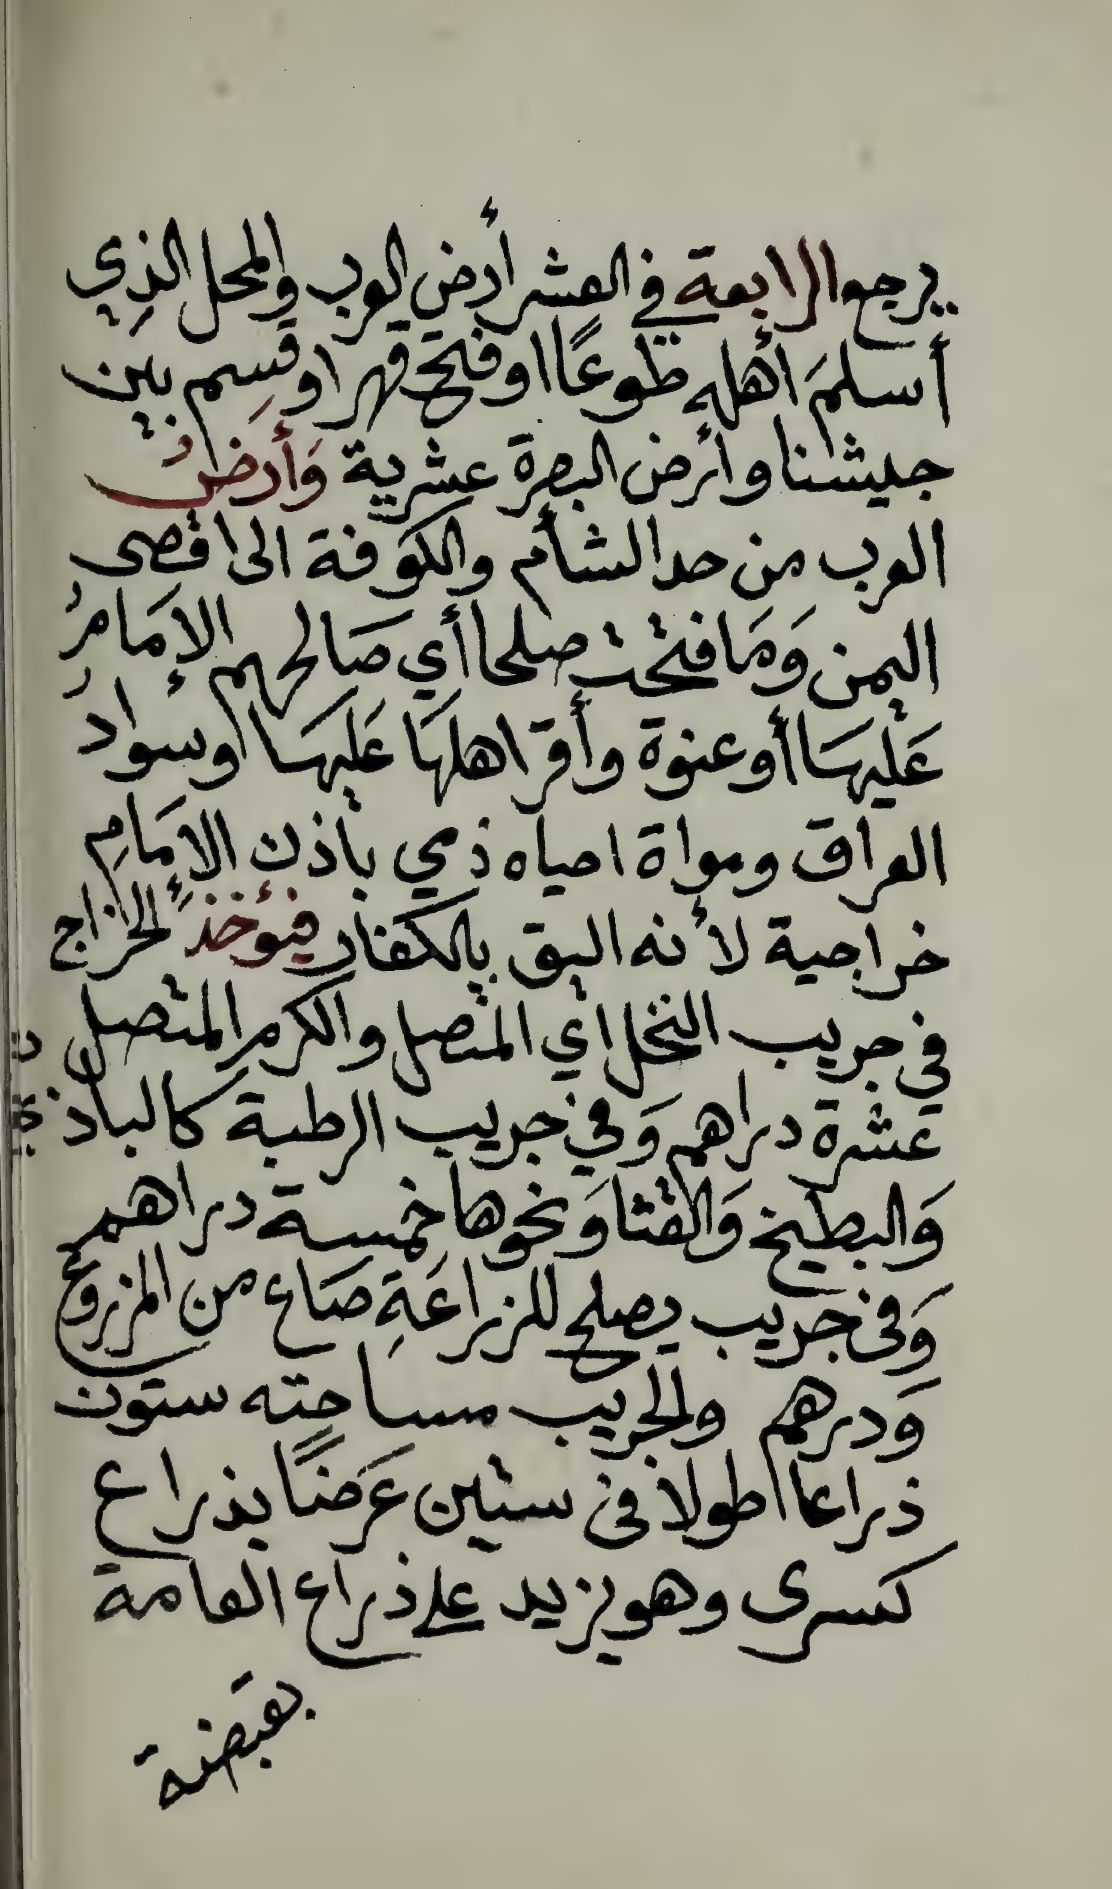 يرجع الرابعة في العشر أرض العرب والمحل الذي
أسلمَ أهله طوعًا او فتح قهرا وقسم بين
جيشنا وأرض البصرة عشرية وَأَرضُ
العرب من حد الشأم والكوفة الى اقصى
اليمن وَمَا فتحت صلحا أي صَالحهم الإمَامُ
عَليهَا أو عنوة وأقر اهلهَا عَليهَا وسوادُ
العراق ومواة احياه ذمي باذن الإمَامِ
خراجية لأنه اليق بالكفار فيؤخذ الخراج
في جريب النخل أي المتصل والكرم المتصل
عشرة دراهم وَفي جريب الرطبة كالباذ
وَالبطيخ وَالقثا وَنحوها خمسة دراهم
وَفي جريب يصلح للزراعَةِ صَاع من المزروع
وَدرهم والجريب مساحته ستون
ذراعا طولا في ستين عَرضًا بذراع
كسرى وهو يزيد على ذراع العامة
بقبضة